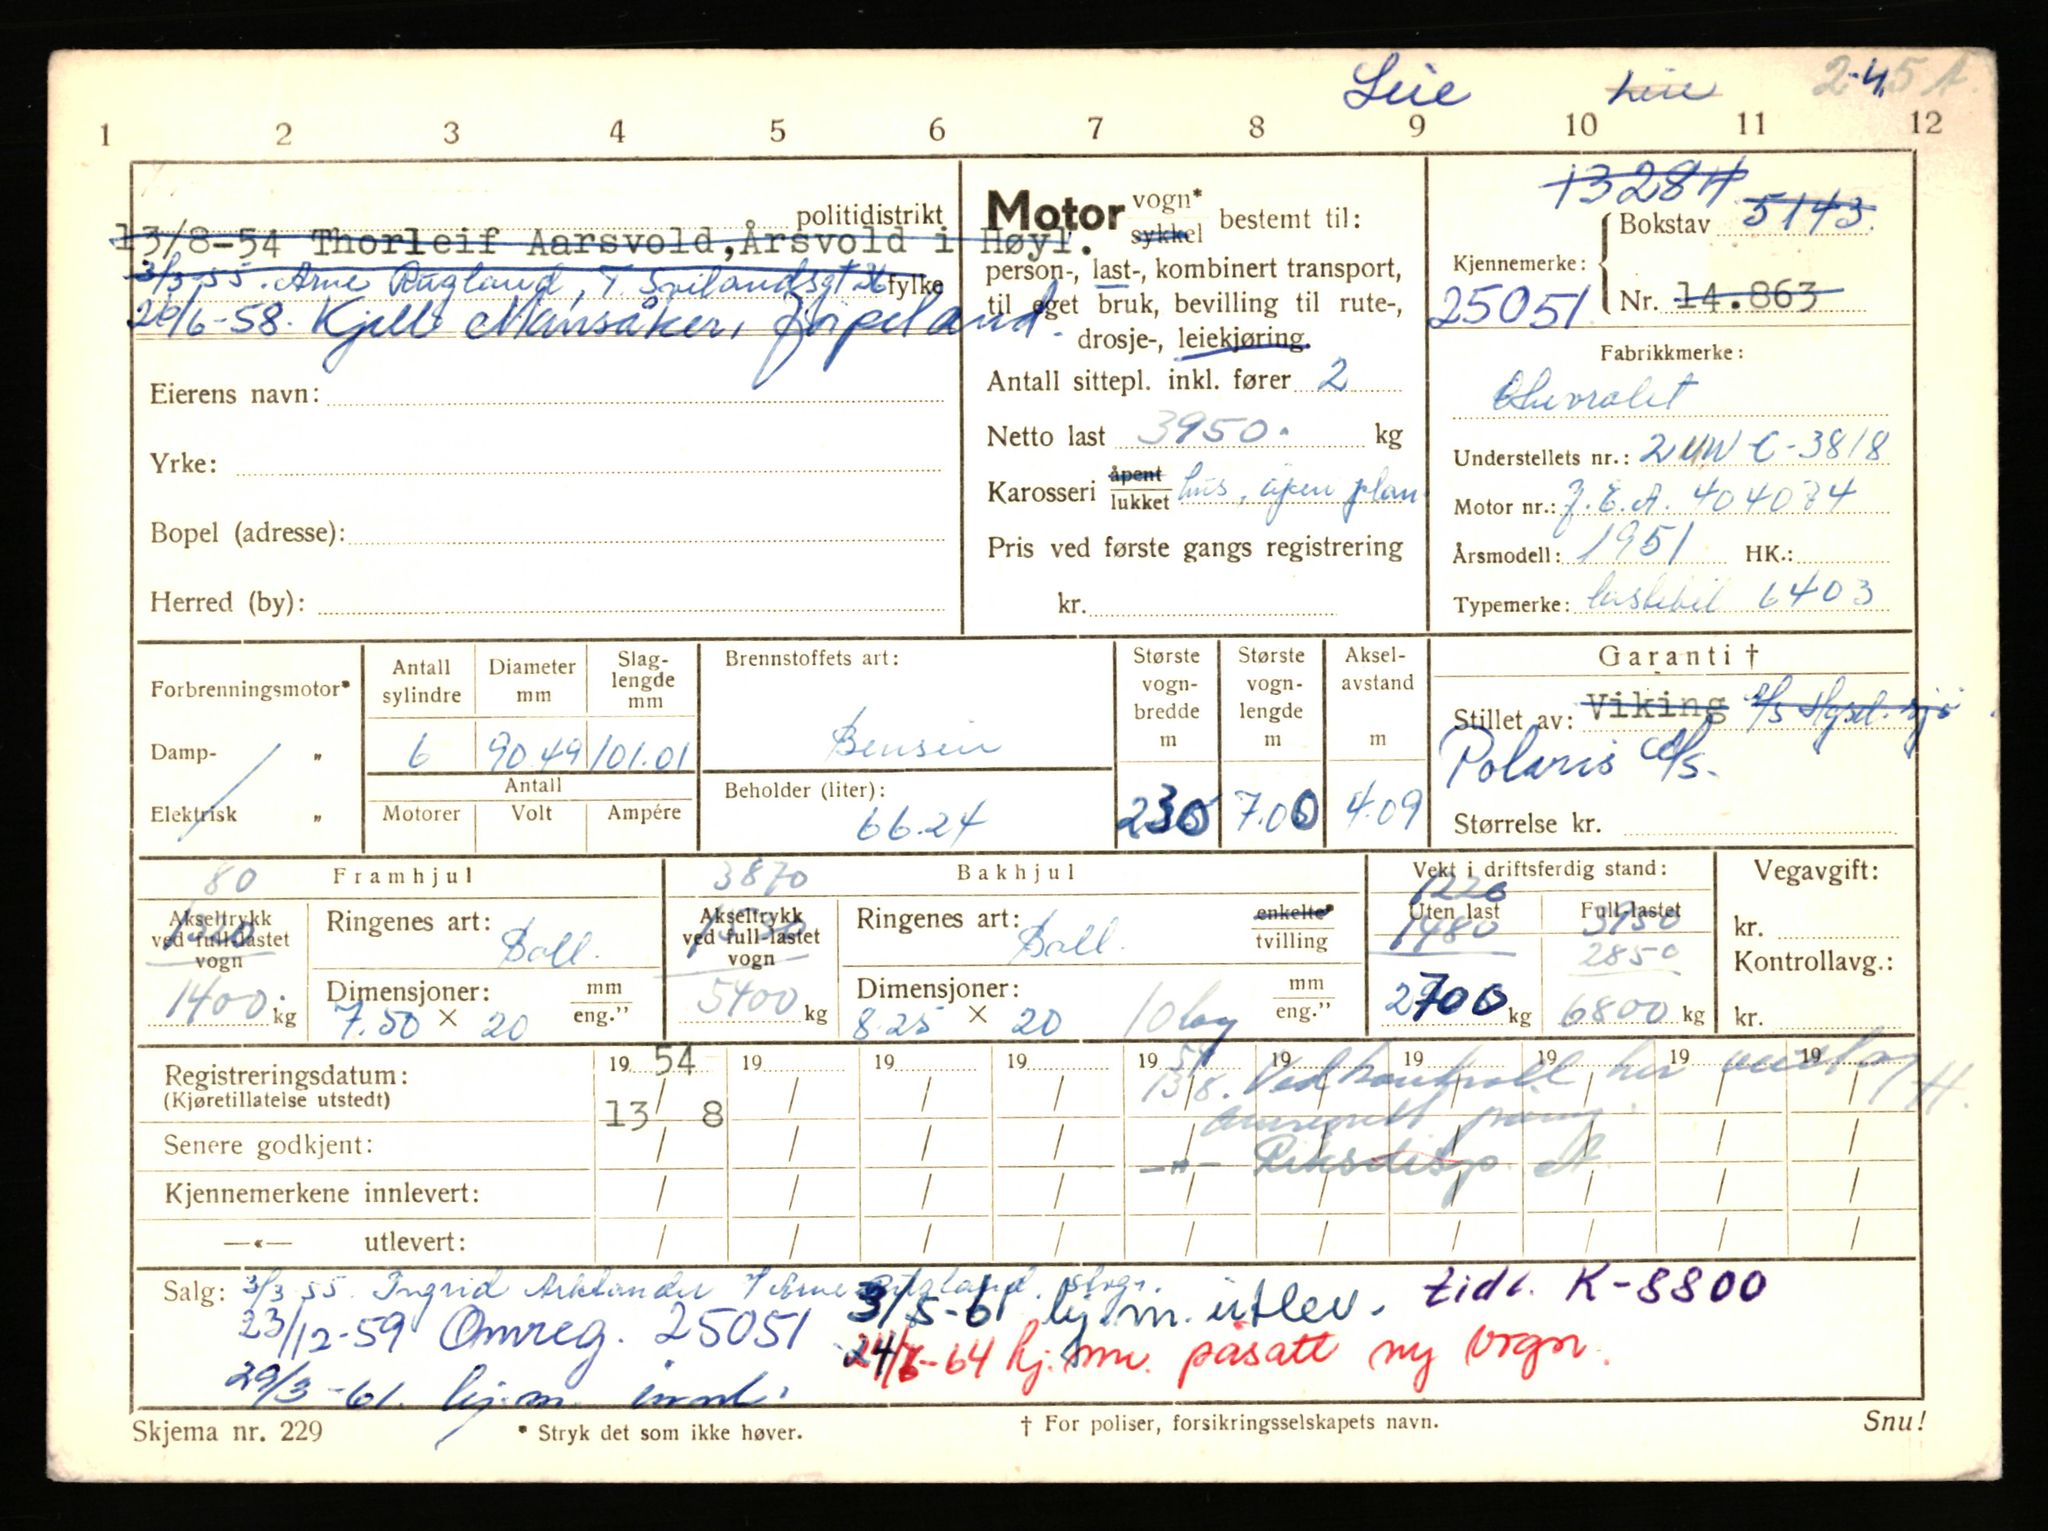 Leie Leie
1 2 3 4 5 6 7 8 9 10 11 12
politidistrikt
13/8-54 Thorleif Aarsvold, Årsvold i Høyl.
3/3-55. Arne Rugland, T. Svilandsgt fylke
26/6-58. Kjell Mansåker, Jørpeland.
Eierens navn:
Yrke:
Bopel (adresse):
Herred (by):
Motor vogn* sykkel bestemt til:
person-, last-, kombinert transport,
til eget bruk, bevilling til rute-,
drosje-, leiekjøring.
Antall sittepl. inkl. fører 2
Netto last 3950. kg
Karosseri åpent lukket hus, åpen plan
Pris ved første gangs registrering
kr.
1328H
Kjennemerke: Bokstav 5143.
25051 Nr. 14.863
Fabrikkmerke:
Chevrolet
Understellets nr.: 2 UW C-3818
Motor nr.: J.E.A. 404074
Årsmodell: 1951 HK.:
Typemerke: lastebil 6403
Forbrenningsmotor*
Damp- „
Elektrisk „
Antall sylindre 6
Diameter mm 90.49
Slaglengde mm 101.01
Antall
Motorer Volt Ampére
Brennstoffets art:
Bensin
Beholder (liter):
66.24
Største vognbredde m 230
Største vognlengde m 7.00
Akselavstand m 4.09
Garanti †
Stillet av: Viking
Polaris A/s.
Størrelse kr.
80 Framhjul
Akseltrykk ved full-lastet vogn
1320
1400. kg
Ringenes art: Ball.
Dimensjoner: mm eng."
7.50 × 20
3870 Bakhjul
Akseltrykk ved full-lastet vogn
1530
5400 kg
Ringenes art: Ball. enkelte* tvilling
Dimensjoner: mm eng."
8.25 × 20 10 lag
Vekt i driftsferdig stand:
1220
Uten last 1480
2700 kg
Full-lastet 3950
2850
6800 kg
Vegavgift:
kr.
Kontrollavg.:
kr.
Registreringsdatum: 19 54 19 19 19 19 54 19 19 19 19 19
(Kjøretillatelse utstedt) 13 8 13/8. Ved kontroll
Senere godkjent:
Kjennemerkene innlevert:
—«— utlevert:
Salg: 3/3 55. Ingrid
23/12-59 Omreg. 25051
29/3-61. kj.m. innl.
3/5-61 kj.m. utlev. tidl. K-8800
24/6-64 kj.m. påsatt ny vogn.
Skjema nr. 229 * Stryk det som ikke høver. † For poliser, forsikringsselskapets navn. Snu!